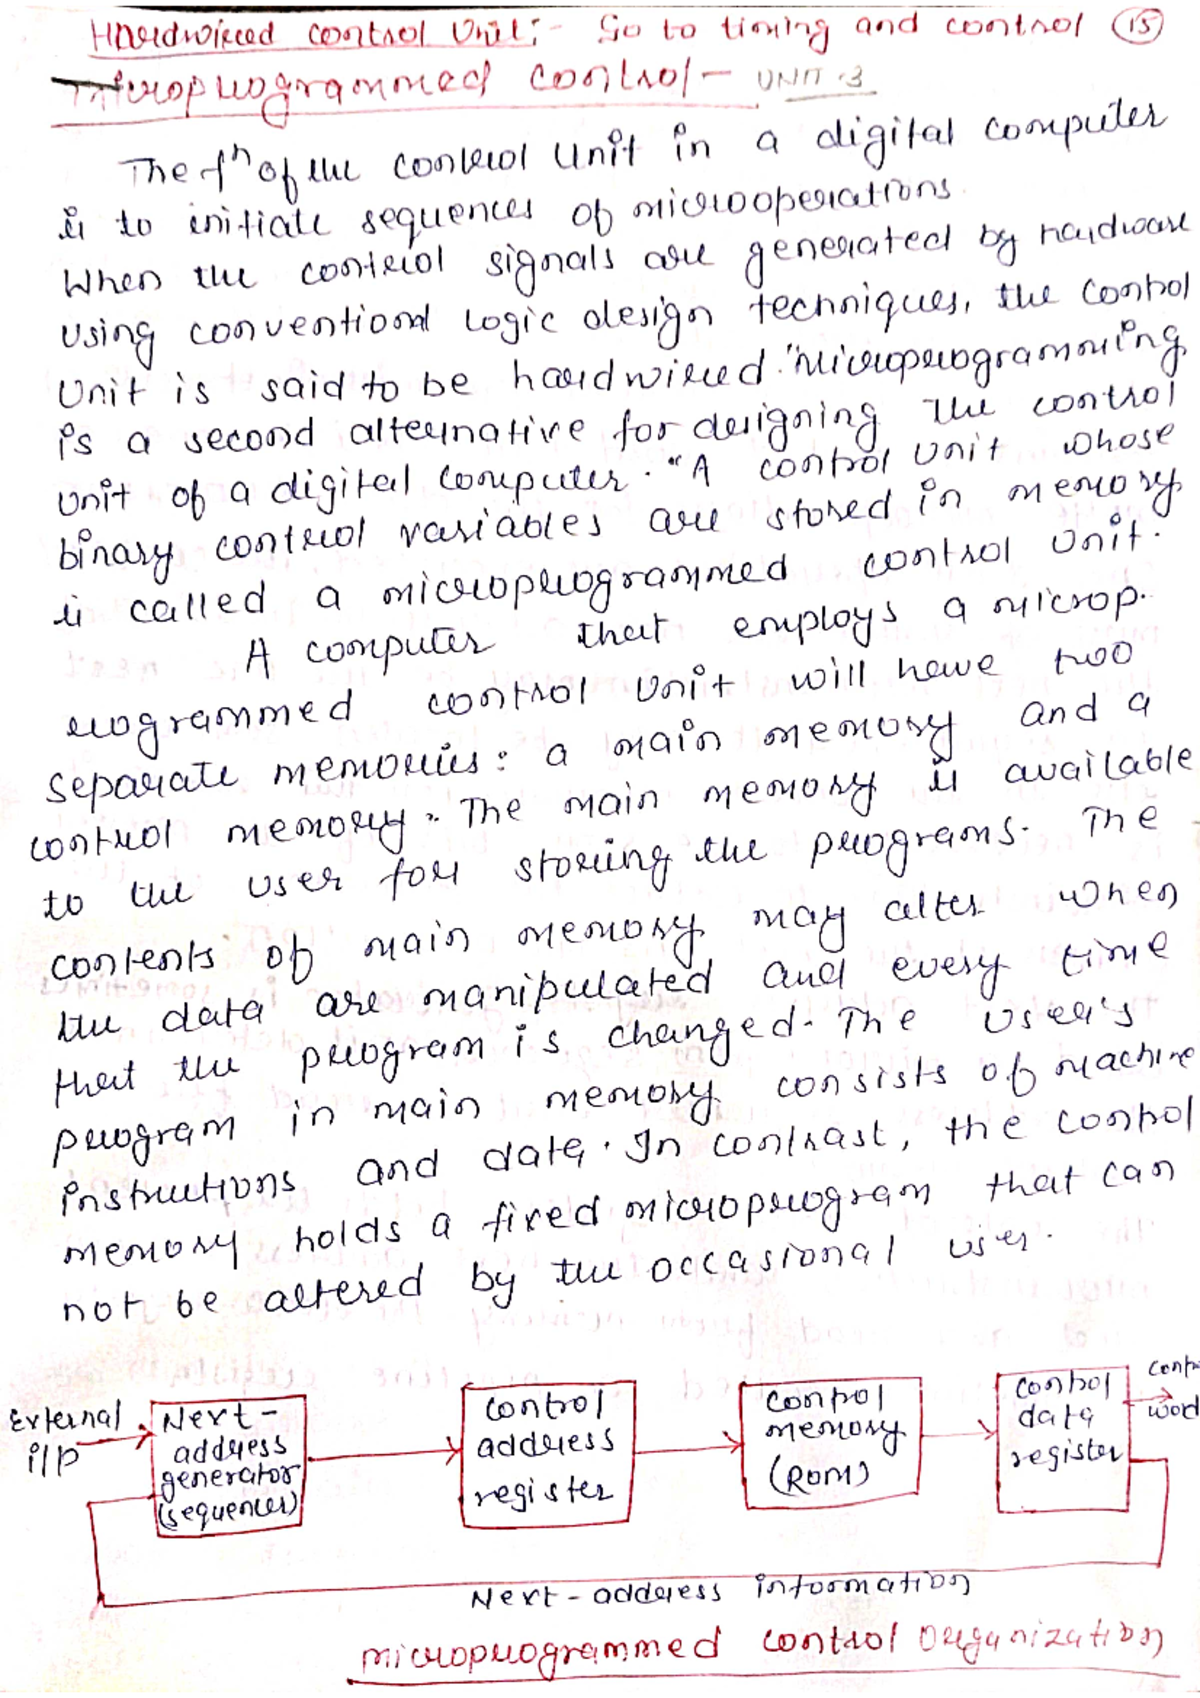 Hardwired control Unit:- Go to timing and control 15
Microprogrammed control - UNIT-3
The fn of the control Unit in a digital computer
is to initiate sequences of microoperations.
When the control signals are generated by hardware
using conventional logic design techniques, the control
Unit is said to be hardwired. "Microprogramming
is a second alternative for designing the control
unit of a digital computer. "A control unit whose
binary control variables are stored in memory
is called a microprogrammed control Unit.
A computer that employs a microp-
rogrammed control Unit will have two
separate memories: a main memory and a
control memory. The main memory is available
to the user for storing the programs. The
contents of main memory may alter when
the data are manipulated and every time
that the program is changed. The User's
program in main memory consists of machine
instructions and data. In contrast, the control
memory holds a fixed microprogram that can
not be altered by the occasional user.
External i/p
Next-
address
generator
(sequencer)
control
address
register
control
memory
(ROM)
control
data
register
contr
word
Next-address information
microprogrammed control organization